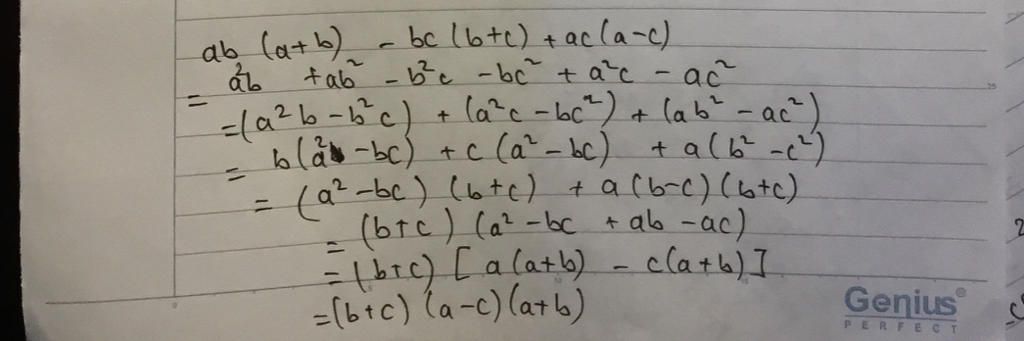 ab (a+b) - bc (b+c) + ac (a-c)
= a²b + ab² - b²c - bc² + a²c - ac²
= (a²b - b²c) + (a²c - bc²) + (ab² - ac²)
= b(a² - bc) + c (a² - bc) + a (b² - c²)
= (a² - bc) (b+c) + a (b-c) (b+c)
= (b+c) (a² - bc + ab - ac)
= (b+c) [a (a+b) - c (a+b)]
= (b+c) (a-c) (a+b)
Genius®
PERFECT